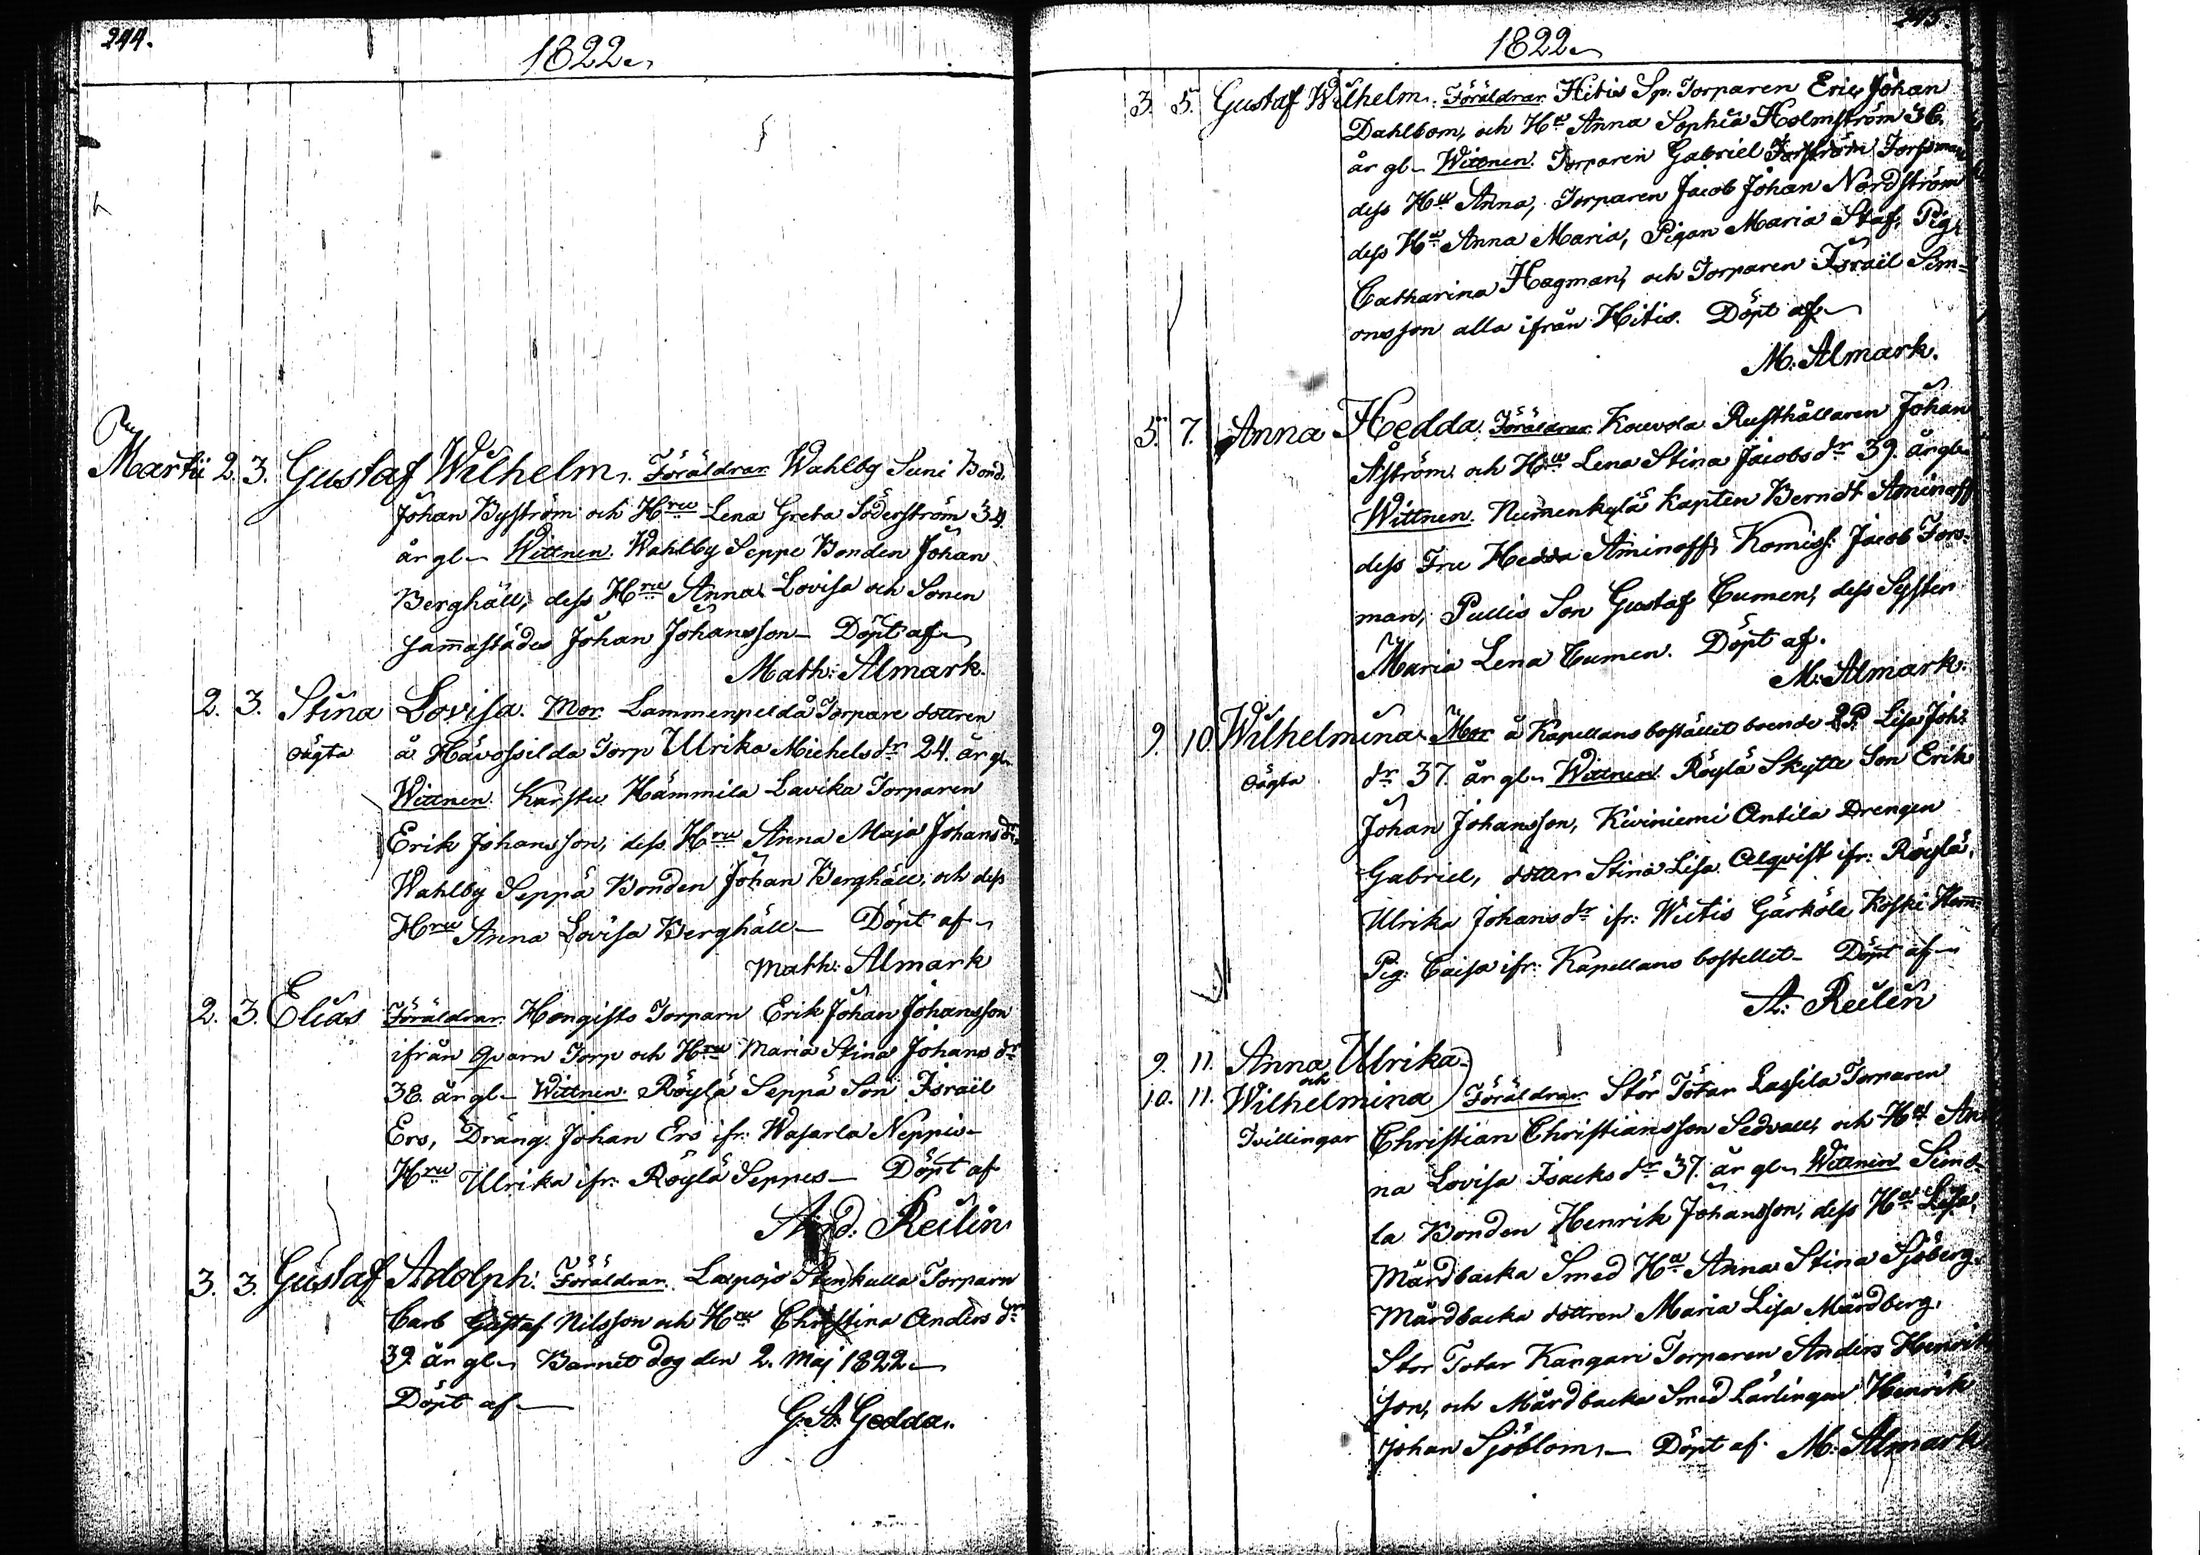 244.
1822.
Martii 2. 3. Gustaf Wilhelm. Föräldrar Wahlby Suni Bond.
Johan Byström och Hru Lena Greta Söderström 34.
år gl. Wittnen. Wahlby Seppe Bonden Johan
Berghäll, dess Hru Anna Lovisa och Sonen
sam̄astädes Johan Johansson — Döpt af
Math: Almark.
2. 3. Stina Lovisa. Mor. Lammenpeldå Torpare dottren
oägta å Håvossilda Torp Ulrika Michels dr 24. år gl.
Wittnen. Karstu Hämmila Lavika Torparen
Erik Johansson, dess Hru Anna Maja Johans dr
Wahlby Seppä Bonden Johan Berghäll, och dess
Hru Anna Lovisa Berghäll — Döpt af
Math: Almark
2. 3. Elias Föräldrar. Hongisto Torparn Erik Johan Johansson
ifrån Qvarn Torp och Hru Maria Stina Johans dr
38. år gl. Wittnen. Röylä Seppä Son Israël
Ers, Dräng. Johan Ers ifr: Wasarla Neppis
Hru Ulrika ifr: Röylä Seppes — Döpt af
And: Reilin
3. 3. Gustaf Adolph. Föräldrar. Laxpojo Stenkulla Torparn
Carl Gustaf Nilsson och Hru Christina Anders dr
39. år gl. Barnet dog den 2. Maj 1822
Döpt af
G. A. Gedda.
245.
1822.
3. 5. Gustaf Wilhelm. Föräldrar Hitis Sp. Torparen Eric Johan
Dahlbom, och Hu Anna Sophia Holmström 36.
år gl. Wittnen. Torparen Gabriel Forsman
dess Hu Anna, Torparen Jacob Johan Nordström
dess Hu Anna Maria, Pigan Maria Staf, Pig.
Catharina Hagman, och Torparen Israël Sim=
onsson alla ifrån Hitis. Döpt af
M. Almark.
5. 7. Anna Hedda. Föräldrar Kouvola Rusthållaren Johan
Åström och Hu Lena Stina Jacobs dr 39. år gl.
Wittnen. Numenkylä Kapten Berndt Aminoff
dess Fru Hedda Aminoff, Komiss: Jacob Fors=
man, Pullis Son Gustaf Cumen, dess Syster
Maria Lena Cumen. Döpt af.
M: Almark.
9. 10 Wilhelmina. Mor å Kapellans bostället boende Lisa Joh:
oägta dr 37. år gl. Wittnen. Röylä Skytte Son Erik
Johan Johansson, Kiviniemi Antila Drengen
Gabriel, dotter Stina Lisa Alqvist ifr: Röylä,
Ulrika Johans dr ifr: Wictis Gärkölä, Koski Ham=
Pig: Caisa ifr: Kapellans bostellet — Döpt af
A. Reilin
9. 11. Anna Ulrika
och
10. 11. Wilhelmina Föräldrar Stor Totar Lassila Torparen
Tvillingar Christian Christiansson Sedvall, och Hu An
na Lovisa Isacks dr 37. år gl. Wittnen Simo-
la Bonden Henrik Johansson, dess Hu Lisa,
Mårdbacka Smed Hu Anna Stina Sjöberg.
Mårdbacka dottren Maria Lisa Mårdberg.
Stor Totar Kangari Torparen Anders Henrik
son, och Mårdbacka Smed Lärlingen Henrik
Johan Sjöblom. — Döpt af. M. Almark